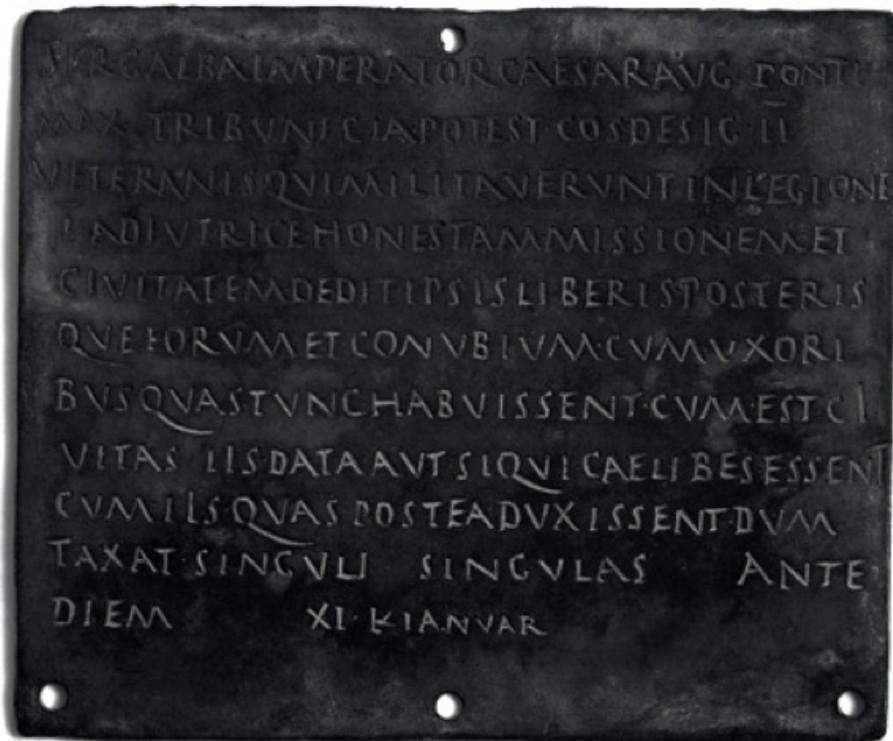 SER GALBA IMPERATOR CAESAR AVG PONTIF
MAX TRIBVNICIA POTEST · COS DESIG · II
VETERANIS QVI MILITAVERVNT IN LEGIONE
I ADIVTRICE HONESTAM MISSIONEM · ET
CIVITATEM DEDIT IPSIS LIBERIS POSTERIS
QVE EORVM ET CONVBIVM · CVM · VXORI
BVS QVAS TVNC HABVISSENT · CVM · EST · CI
VITAS IIS DATA AVT SIQVI CAELIBES ESSENT
CVM IIS · QVAS POSTEA DVXISSENT · DVM
TAXAT · SINGVLI SINGVLAS ANTE
DIEM XI · K IANVAR